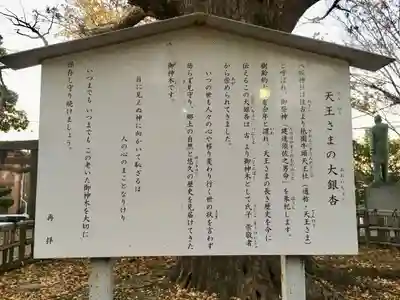 天王さまの大銀杏
八坂神社は往古より、祇園牛頭天王社(通称・天王さま)
と呼ばれ、御祭神「建速須佐之男命」を奉祀します。
樹齢約 百年と謂れ、天王さまの長き歴史を今に
伝えるこの大銀杏は、古より御神木として氏子 崇敬者
から崇められてきました。
いつの世も人々の心で移り変わり行く世の状を言わず
語らず見守り、郷土の自然と悠久の歴史を見届けてきた
御神木です。
目に見えぬ神に向かいて恥ざるは
人の心のまことなりけり
いつまでも いつまでも この老いた御神木を大切に
保存し守り続けましょう。
再拝